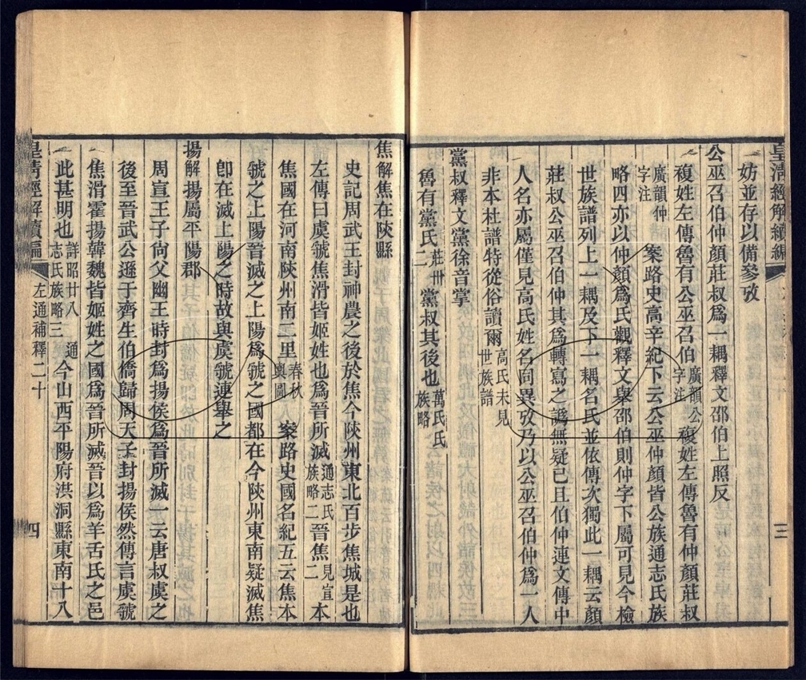 皇清經解續編
三
妨並存以備參攷
公巫召伯仲顏莊叔爲一耦釋文邵伯上照反
複姓左傳魯有公巫召伯廣韻公字注複姓左傳魯有仲顏莊叔
廣韻仲字注案路史高辛紀下云公巫仲顏皆公族通志氏族
略四亦以仲顏爲氏觀釋文舉邵伯則仲字下屬可見今檢
世族譜列上一耦及下一耦名氏並依傳次獨此一耦云顏
莊叔公巫召伯仲其爲轉寫之譌無疑已且伯仲連文傳中
人名亦屬僅見高氏姓名同異攷乃以公巫召伯仲爲一人
非本杜譜特從俗讀爾高氏未見世族譜
黨叔釋文黨徐音掌
魯有黨氏莊卅二黨叔其後也萬氏氏族略
焦解焦在陝縣
史記周武王封神農之後於焦今陝州東北百步焦城是也
左傳曰虞虢焦滑皆姬姓也爲晉所滅通志氏族略二晉焦見宣二本
焦國在河南陝州南二里春秋輿圖案路史國名紀五云焦本
虢之上陽晉滅之上陽爲虢之國都在今陝州東南疑滅焦
卽在滅上陽之時故與虞虢連舉之
揚解揚屬平陽郡
周宣王子尙父幽王時封爲揚侯爲晉所滅一云唐叔虞之
後至晉武公遜于齊生伯僑歸周天子封揚侯然傳言虞虢
焦滑霍揚韓魏皆姬姓之國爲晉所滅晉以爲羊舌氏之邑
此甚明也詳昭廿八通志氏族略三今山西平陽府洪洞縣東南十八
皇淸經解續編
左通補釋二十
四